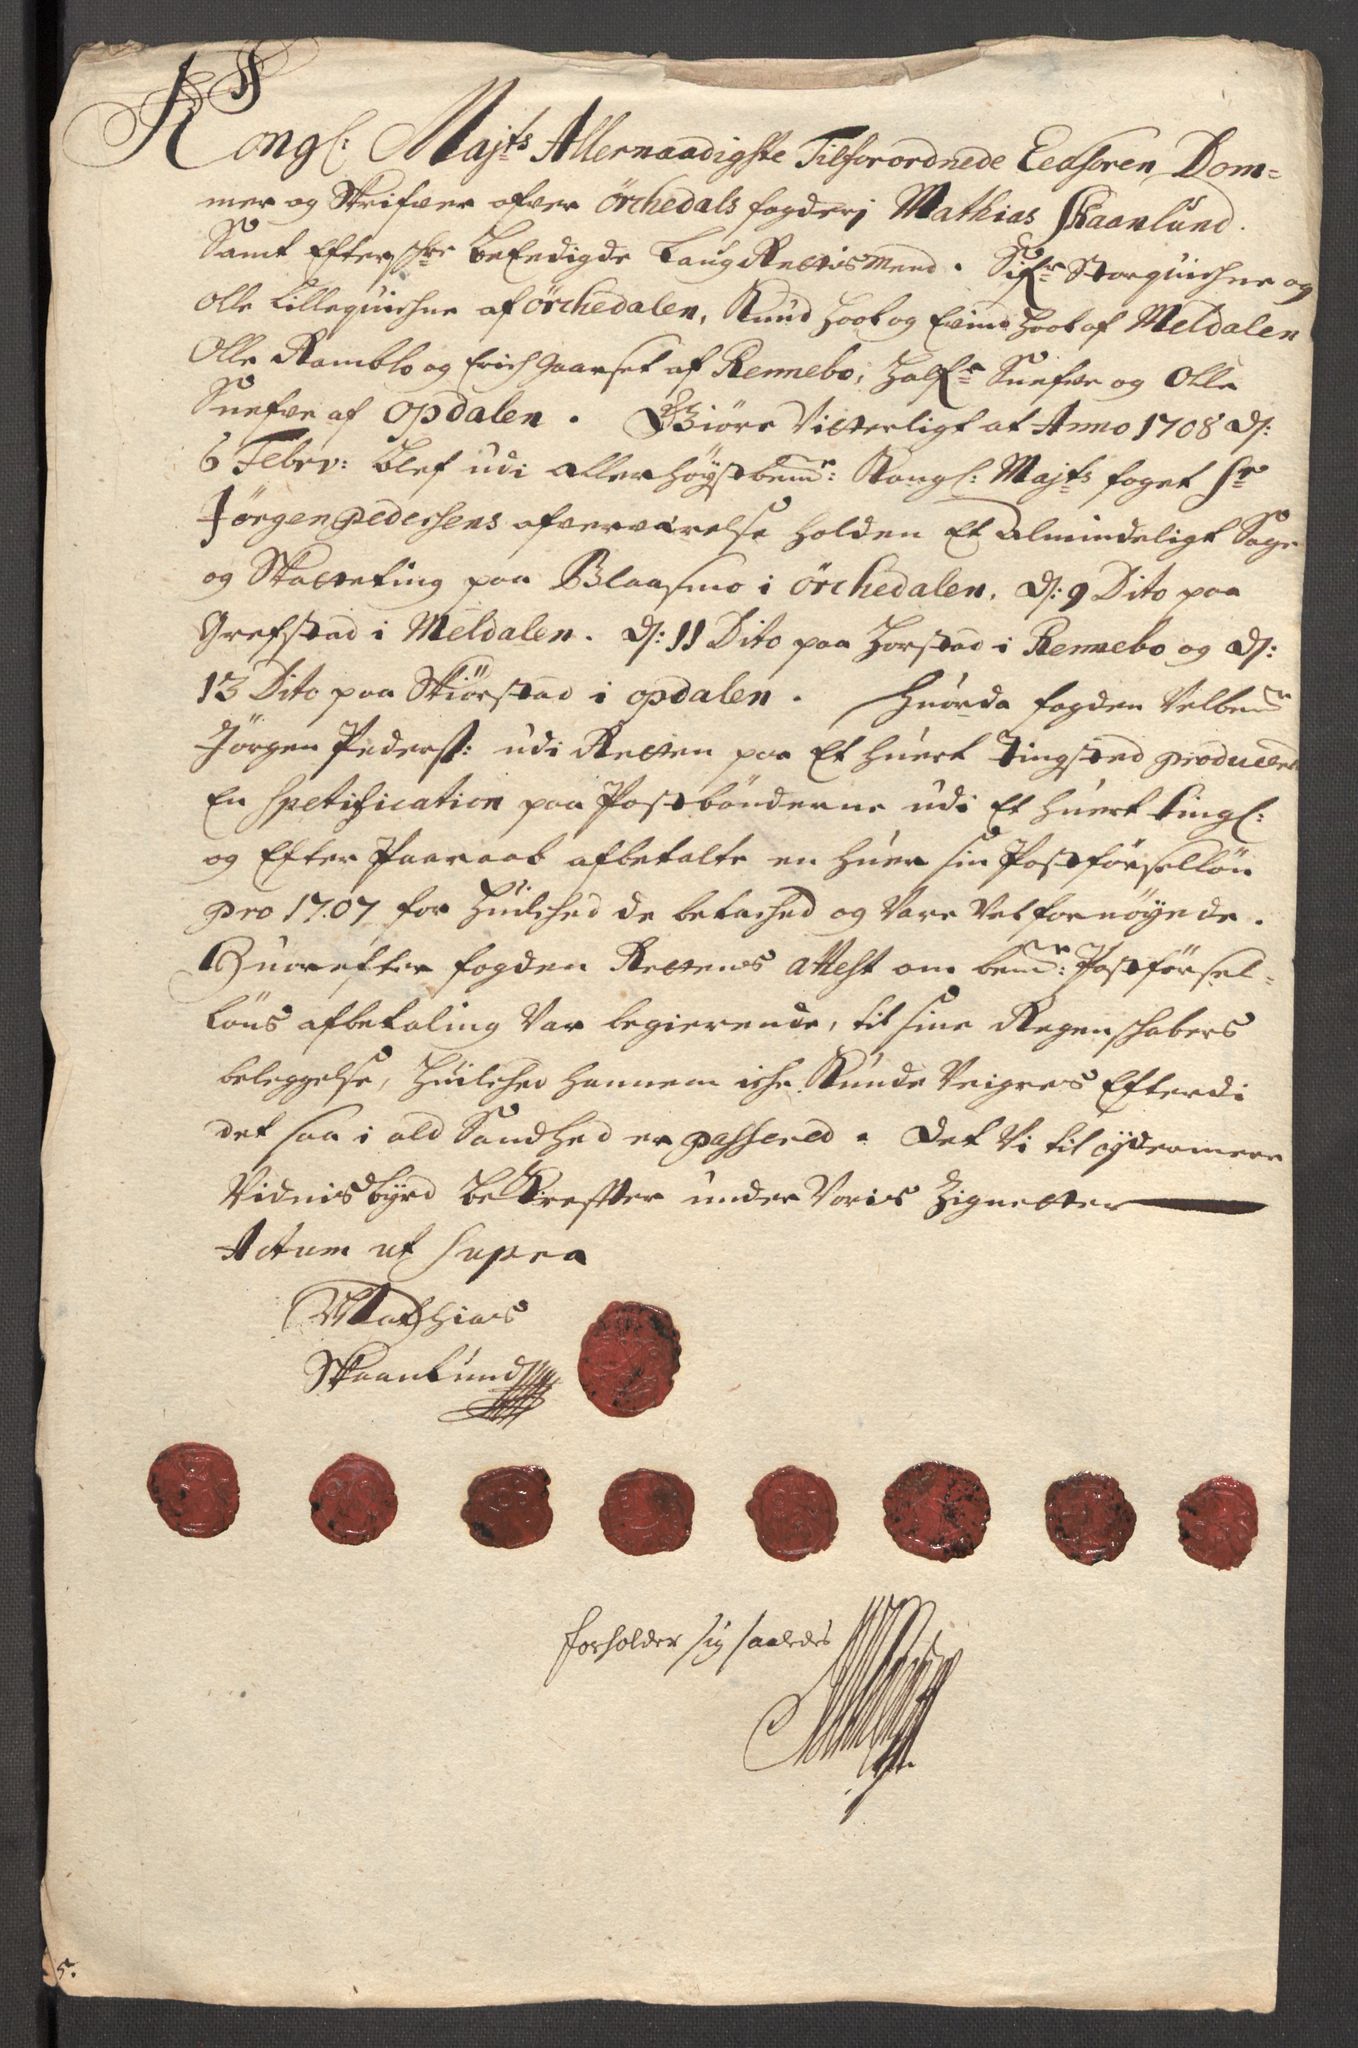 Kongl: Majts Allernaadigste Tilforordnede Eedsoren Dom=
mer og Skrifver ofver Örchedals fogderj Mathias Skaanlund.
Samt Efterschr: beEedigde LaugRettismend. Sifr Storquichne og
Olle Lillequichne af Örchedalen, Knud Hoel og Evind Hoel af Meldalen
Olle Ramblo og Erich Gaarset af Rennebo, Halfr Snefve og Olle
Snefve af Opdalen. Giöre Vitterligt at Anno 1708 d:
6 Febrv: blef udi allerhöystbemr: Kongl: Majts foget Sr
Jörgen Pedersens ofverværelse holden Et Almindeligt Sage
og Skatteting paa Blaasmo i Örchedalen, d: 9 Dito paa
Grefstad i Meldalen. d: 11 Dito paa Horstad i Rennebo og d:
13 Dito paa Skiörstad i Opdalen. Huorda fogden Velbemr
Jörgen Peders: udi Retten paa Et huert Tingsted producered
En Spetification paa Postbönderne udi Et huert tingl:
og Efter Paaraab afbetalte en huer sin Postförsellön
pro 1707 for Huilched de betached og Vare Vel fornöyede.
Huorefter fogden Rettens attest om bemr: Postförsel-
löns afbetaling Var begierende, til sine Regenschabers
beleggelse, Huilched hannem iche Kunde Veigres Efterdi
det saa i ald Sandhed er passered. Det Vi til ydermeere
Vidnisbyrd beKreffter under Voris Zignetter
Actum ut supra
Mathias
Skaanlund
forholder sig saaledes
5.